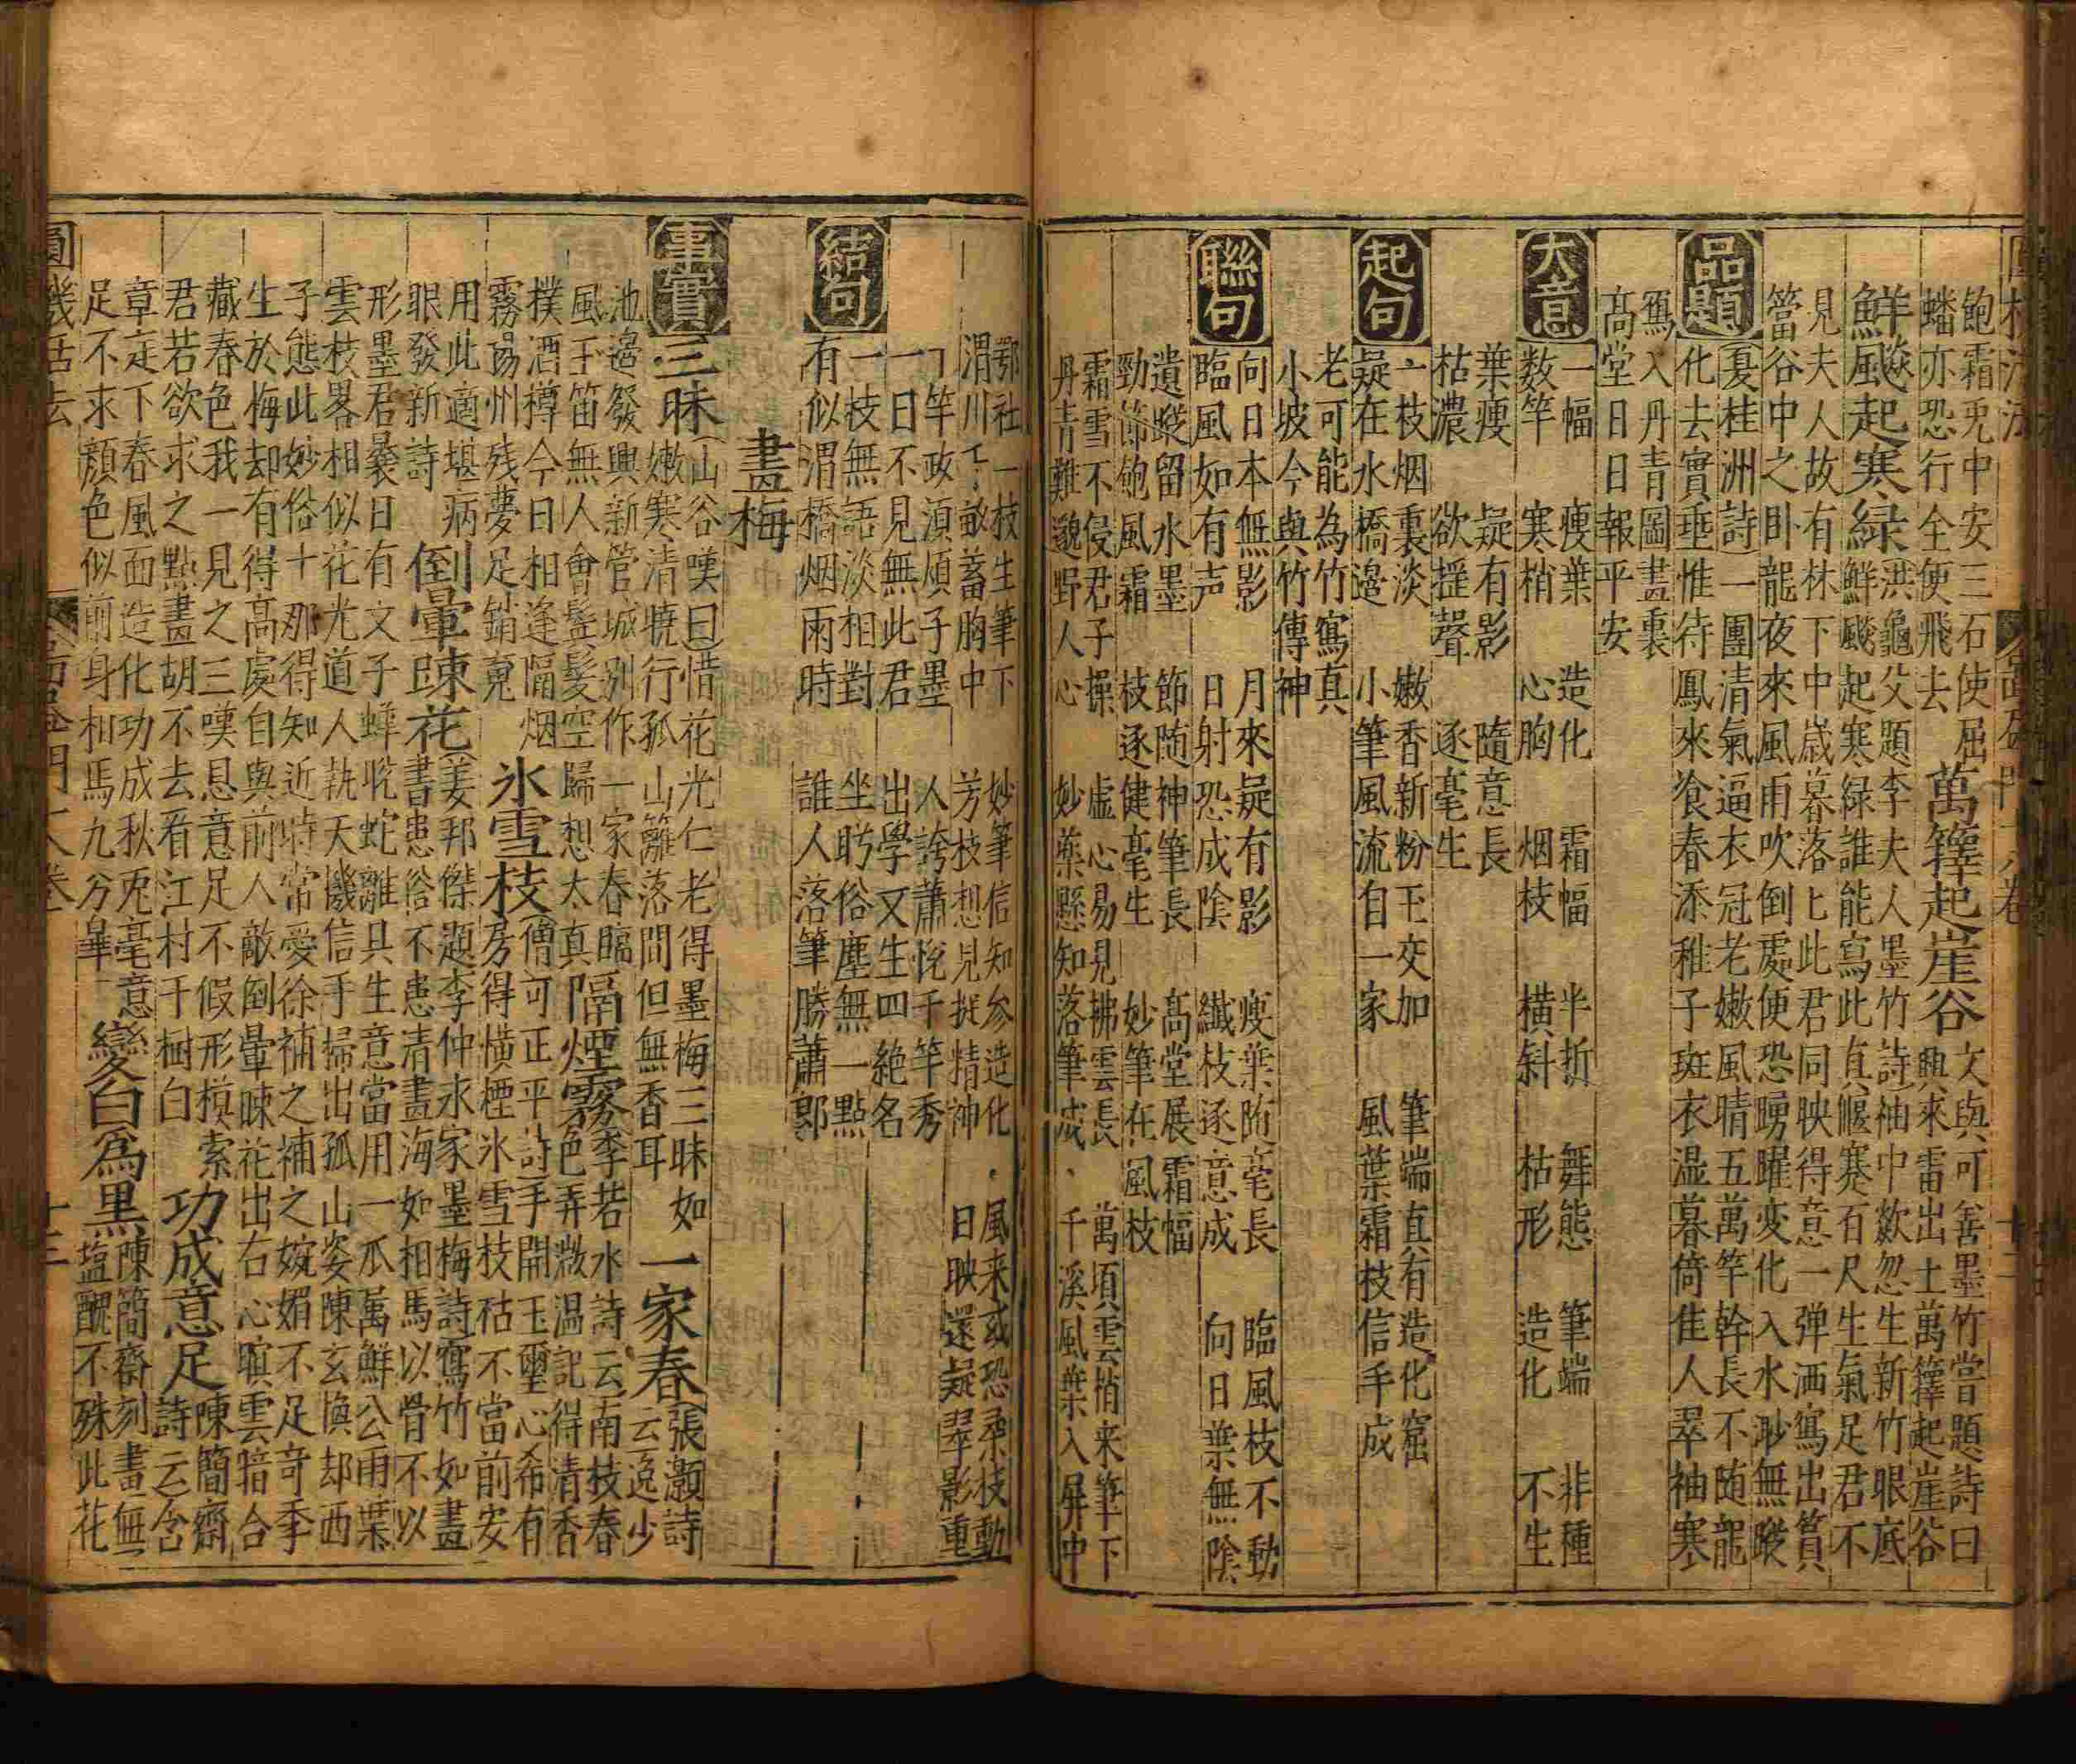 飽霜兎中安三石使屈
蟠亦恐行全便飛去
萬籜起崖谷
文與可善墨竹嘗題詩曰
興來雷出土萬籜起崖谷
鮮飈起寒緑
洪龜父題李夫人墨竹詩袖中歘忽生新竹眼底
鮮飈起寒緑誰能寫此真偃蹇百尺生氣足君不
見夫人故有林下中嵗暮落匕此君同映得意一弹洒寫出篔
簹谷中之卧龍夜來風雨吹倒處便恐踴曜变化入水渺無蹤
品題
夏桂洲詩一團清氣逼衣冠老嫩風晴五萬竿幹長不随龍
化去實垂惟待鳳來飡春添稚子斑衣温暮倚佳人翠袖寒
寫入丹青圖畫裏
高堂日日報平安
大意
一幅 瘦葉 造化 霜幅 半折 舞態 筆端 非種
数竿 寒梢 心胸 烟枝 横斜 枯形 造化 不生
葉瘦 疑有影 隨意長
枯濃 欲揺聲 逐毫生
起句
一枝烟裏淡 嫩香新粉玉交加 筆端直有造化窟
疑在水橋邊 小筆風流自一家 風葉霜枝信手成
老可能為竹寫真
小坡今與竹傳神
聯句
向日本無影 月來疑有影 瘦葉随毫長 臨風枝不動
臨風如有声 日射恐成陰 纎枝逐意成 向日葉無陰
遺蹤留水墨 節随神筆長 高堂展霜幅
勁節飽風霜 枝逐健毫生 妙筆在風枝
霜雪不侵君子操 虚心易見拂雲長 萬頃雲梢来筆下
丹青難邈野人心 妙藥懸知落筆成 千溪風葉入屏中
鄂社一枝生筆下 妙筆信知参造化 風来或恐桑枝動
渭川千畝蓄胸中 芳枝想見挺精神 日映還疑翠影重
結句
一竿政湏煩子墨 人誇蕭恱千竿秀
一日不見無此君 出學又生四絶名
一枝無語淡相對 坐盻俗塵無一點
有似渭橋烟雨時 誰人落筆勝蕭郎
畫梅
事實
三昧
山谷嘆曰惜花光仁老得墨梅三昧如
嫩寒清曉行孤山籬落間但無香耳
一家春
張灝詩
云逸少
池邉發興新管城别作一家春臨
風玉笛無人會鬓髪空歸想太真
隔煙霧
李若水詩云南枝春
色弄微温記得清香
撲酒樽今日相逢隔烟
霧揚州残夢足銷䰟
氷雪枝
僧可正平詩手開玉壐心希有
房得横枝氷雪枝枯不當前安
用此適堪病
眼發新詩
倒暈踈花
姜邦傑題李仲永家墨梅詩寫竹如畫
書患俗不患清畫海如相馬以骨不以
形墨君曩日有文子蟬蛻蛇離具生意當用一爪萬鮮公雨葉
雲枝畧相似花光道人執天機信手掃出孤山姿陳玄愼却西
子態此妙俗十那得知近時常愛徐補之補之婉媚不足奇季
生於梅却有得高處自與前人敵倒暈踈花出右心暝雲暗合
藏春色我一見之三嘆息意足不假形模索
君若欲求之點畫胡不去看江村千樹白
功成意足
陳簡齋
詩云含
章疋下春風面造化功成秋兎毫意
足不求顔色似前身相馬九方臯
變白爲黒
陳簡齋刻畫無
塩醜不殊此花